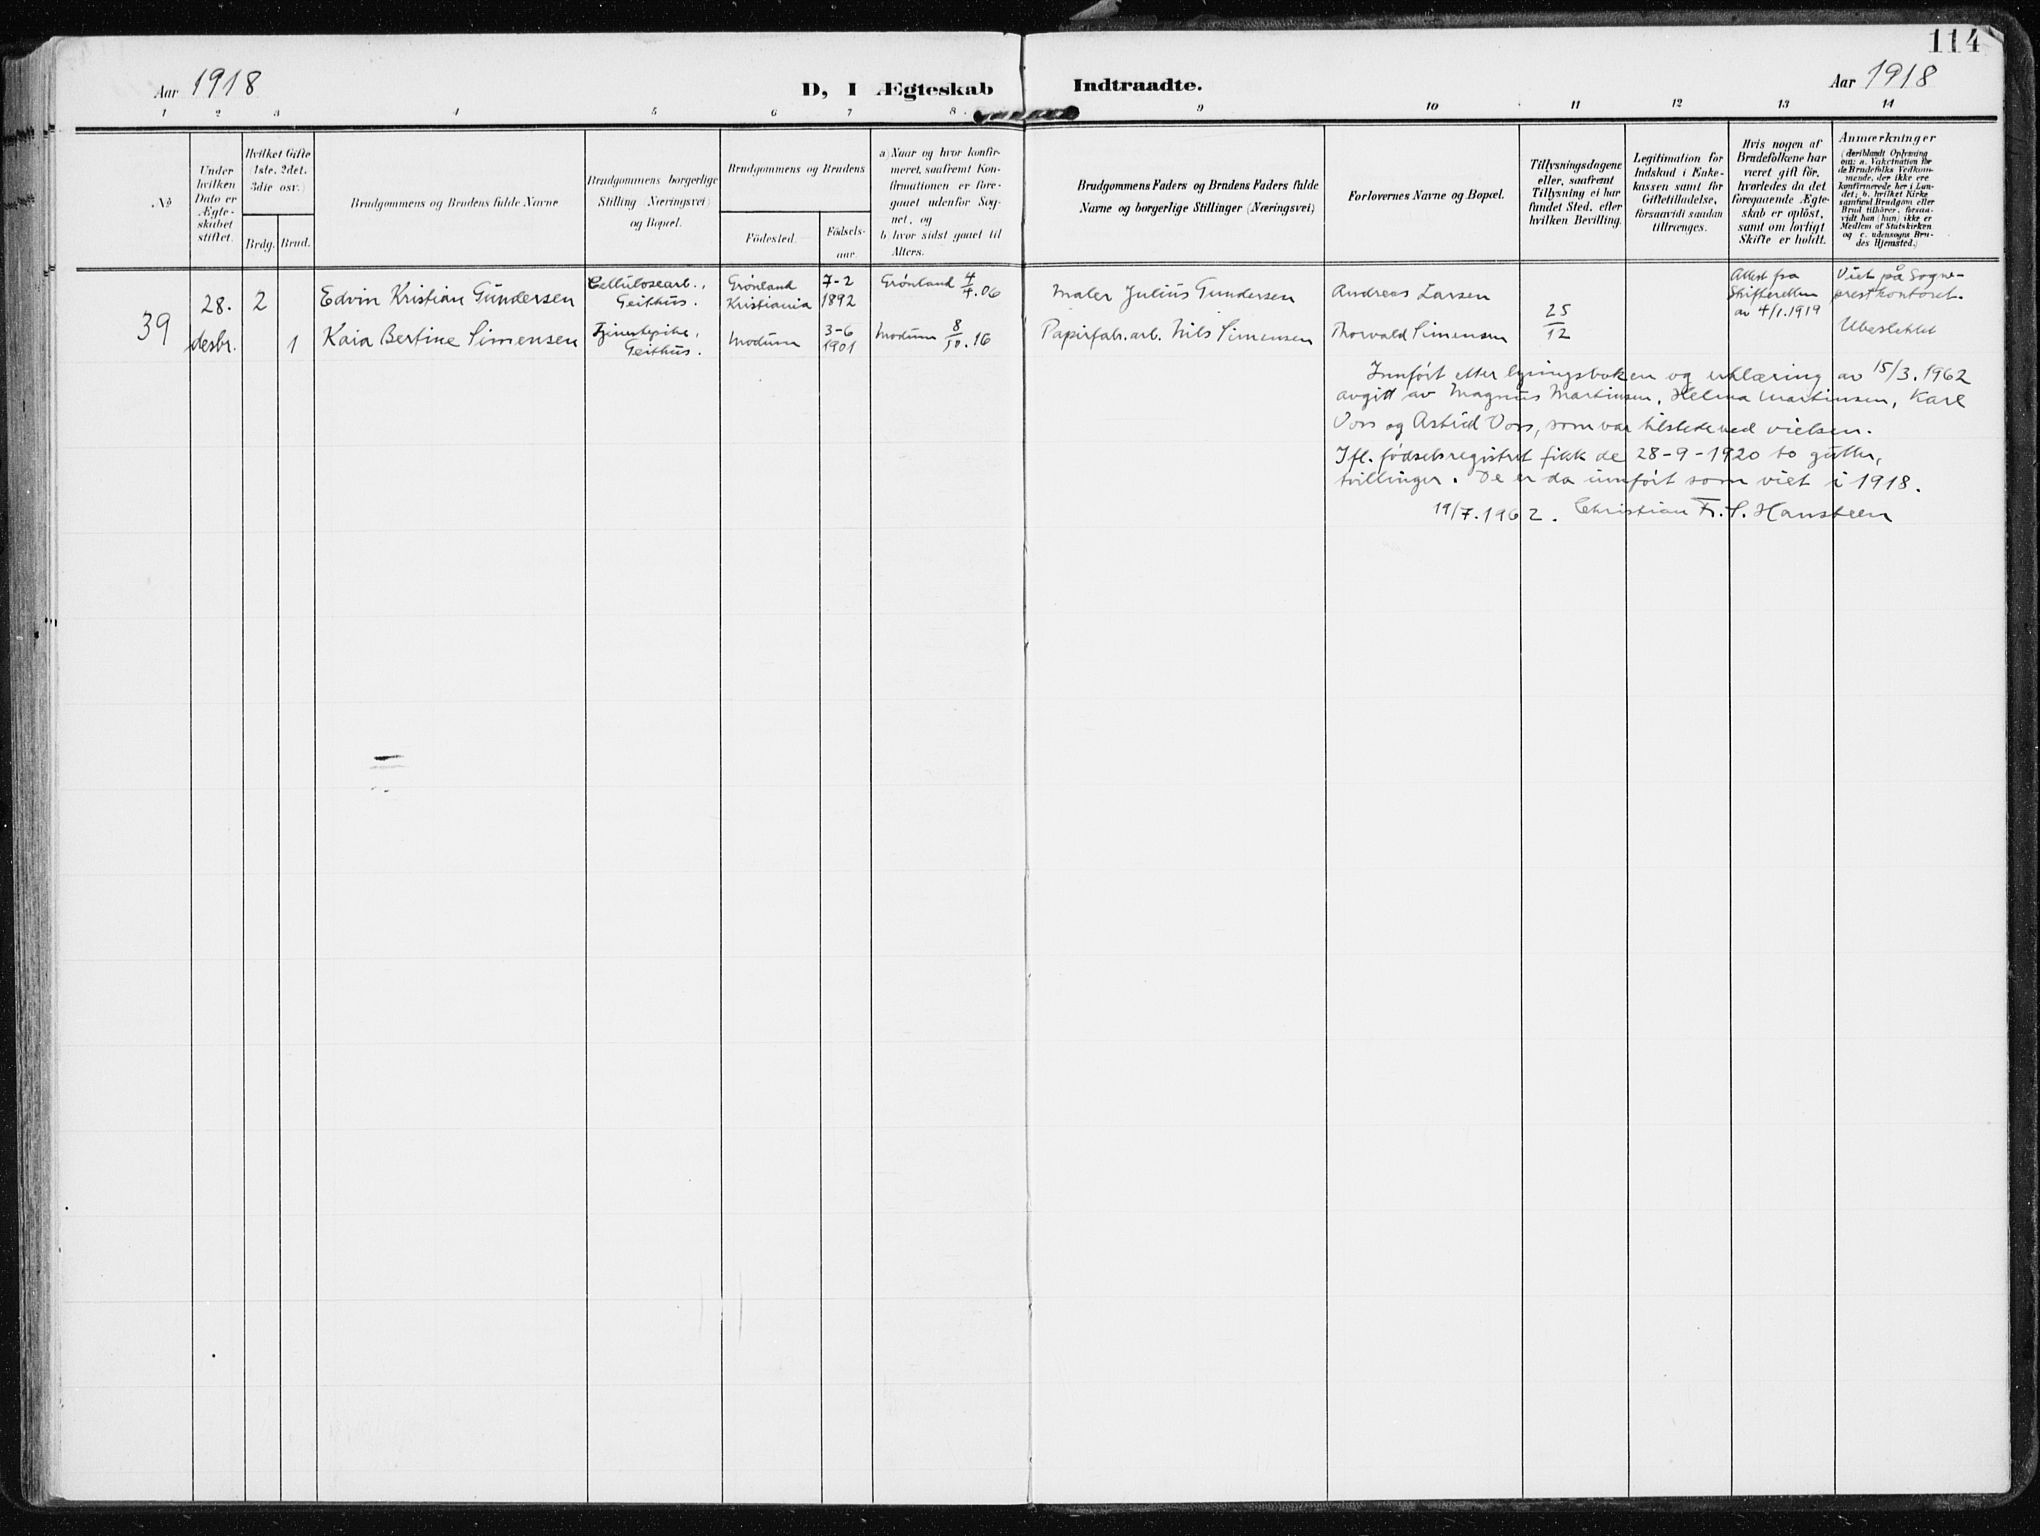 114
Aar 1918
D, I Ægteskab Indtraadte.
Aar 1918
1 2 3 4 5 6 7 8 9 10 11 12 13 14
No
Under
hvilken
Dato er
Ægte-
skabet
stiftet.
Hvilket Gifte
(1ste, 2det,
3die osv.)
Brdg. Brud.
Brudgommens og Brudens fulde Navne
Brudgommens borgerlige
Stilling (Næringsvei)
og Bopæl.
Brudgommens og Brudens
Fødested.
Fødsels-
aar.
a) Naar og hvor konfir-
meret, saafremt Kon-
firmationen er fore-
gaaet udenfor Sog-
net, og
b. hvor sidst gaaet til
Alters.
Brudgommens Faders og Brudens Faders fulde
Navne og borgerlige Stillinger (Næringsvei)
Forlovernes Navne og Bopæl.
Tillysningsdagene
eller, saafremt
Tillysning ei har
fundet Sted, efter
hvilken Bevilling.
Legitimation for
Indskud i Enke-
kassen samt for
Giftetilladelse,
forsaavidt saadan
tiltrænges.
Hvis nogen af
Brudefolkene har
været gift før,
hvorledes da det
foregaaende Ægte-
skab er opløst,
samt om lovligt
Skifte er holdt.
Anmærkninger
(deriblandt Oplysning
om: a. Vakcination for
de Brudefolks Vedkom-
mende, der ikke ere
konfirmerede her i Lan-
det; b. hvilket Kirke
samfund Brudgom eller
Brud tilhører, forsaa-
vidt han (hun) ikke er
Medlem af Statskirken
og c. udensogns Bru-
des Hjemsted.)
39
28. desbr.
2 Edvin Kristian Gundersen
Cellulosearb., Geithus.
Grønland Kristiania
7-2 1892
Grønland 4/4.06
Maler Julius Gundersen
Andreas Larsen
25/12
Attest fra
Skifteretten
av 4/1.1919
Viet på Sogne-
prestkontoret.
1 Kaia Bertine Simensen
Tjenestepike, Geithus.
Modum
3-6 1901
Modum 8/10.16
Papirfab.arb. Nils Simensen
Thorvald Simensen
Ubeslektet
Innført etter lysningsboken og erklæring av 15/3.1962
avgitt av Magnus Martinsen, Helma Martinsen, Karl
Vors og Astrid Vors, som var tilstede ved vielsen.
Ifl. fødselsregistret fikk de 28-9-1920 to gutter,
tvillinger. De er da innført som viet i 1918.
19/7.1962. Christian Fr. S. Hansteen